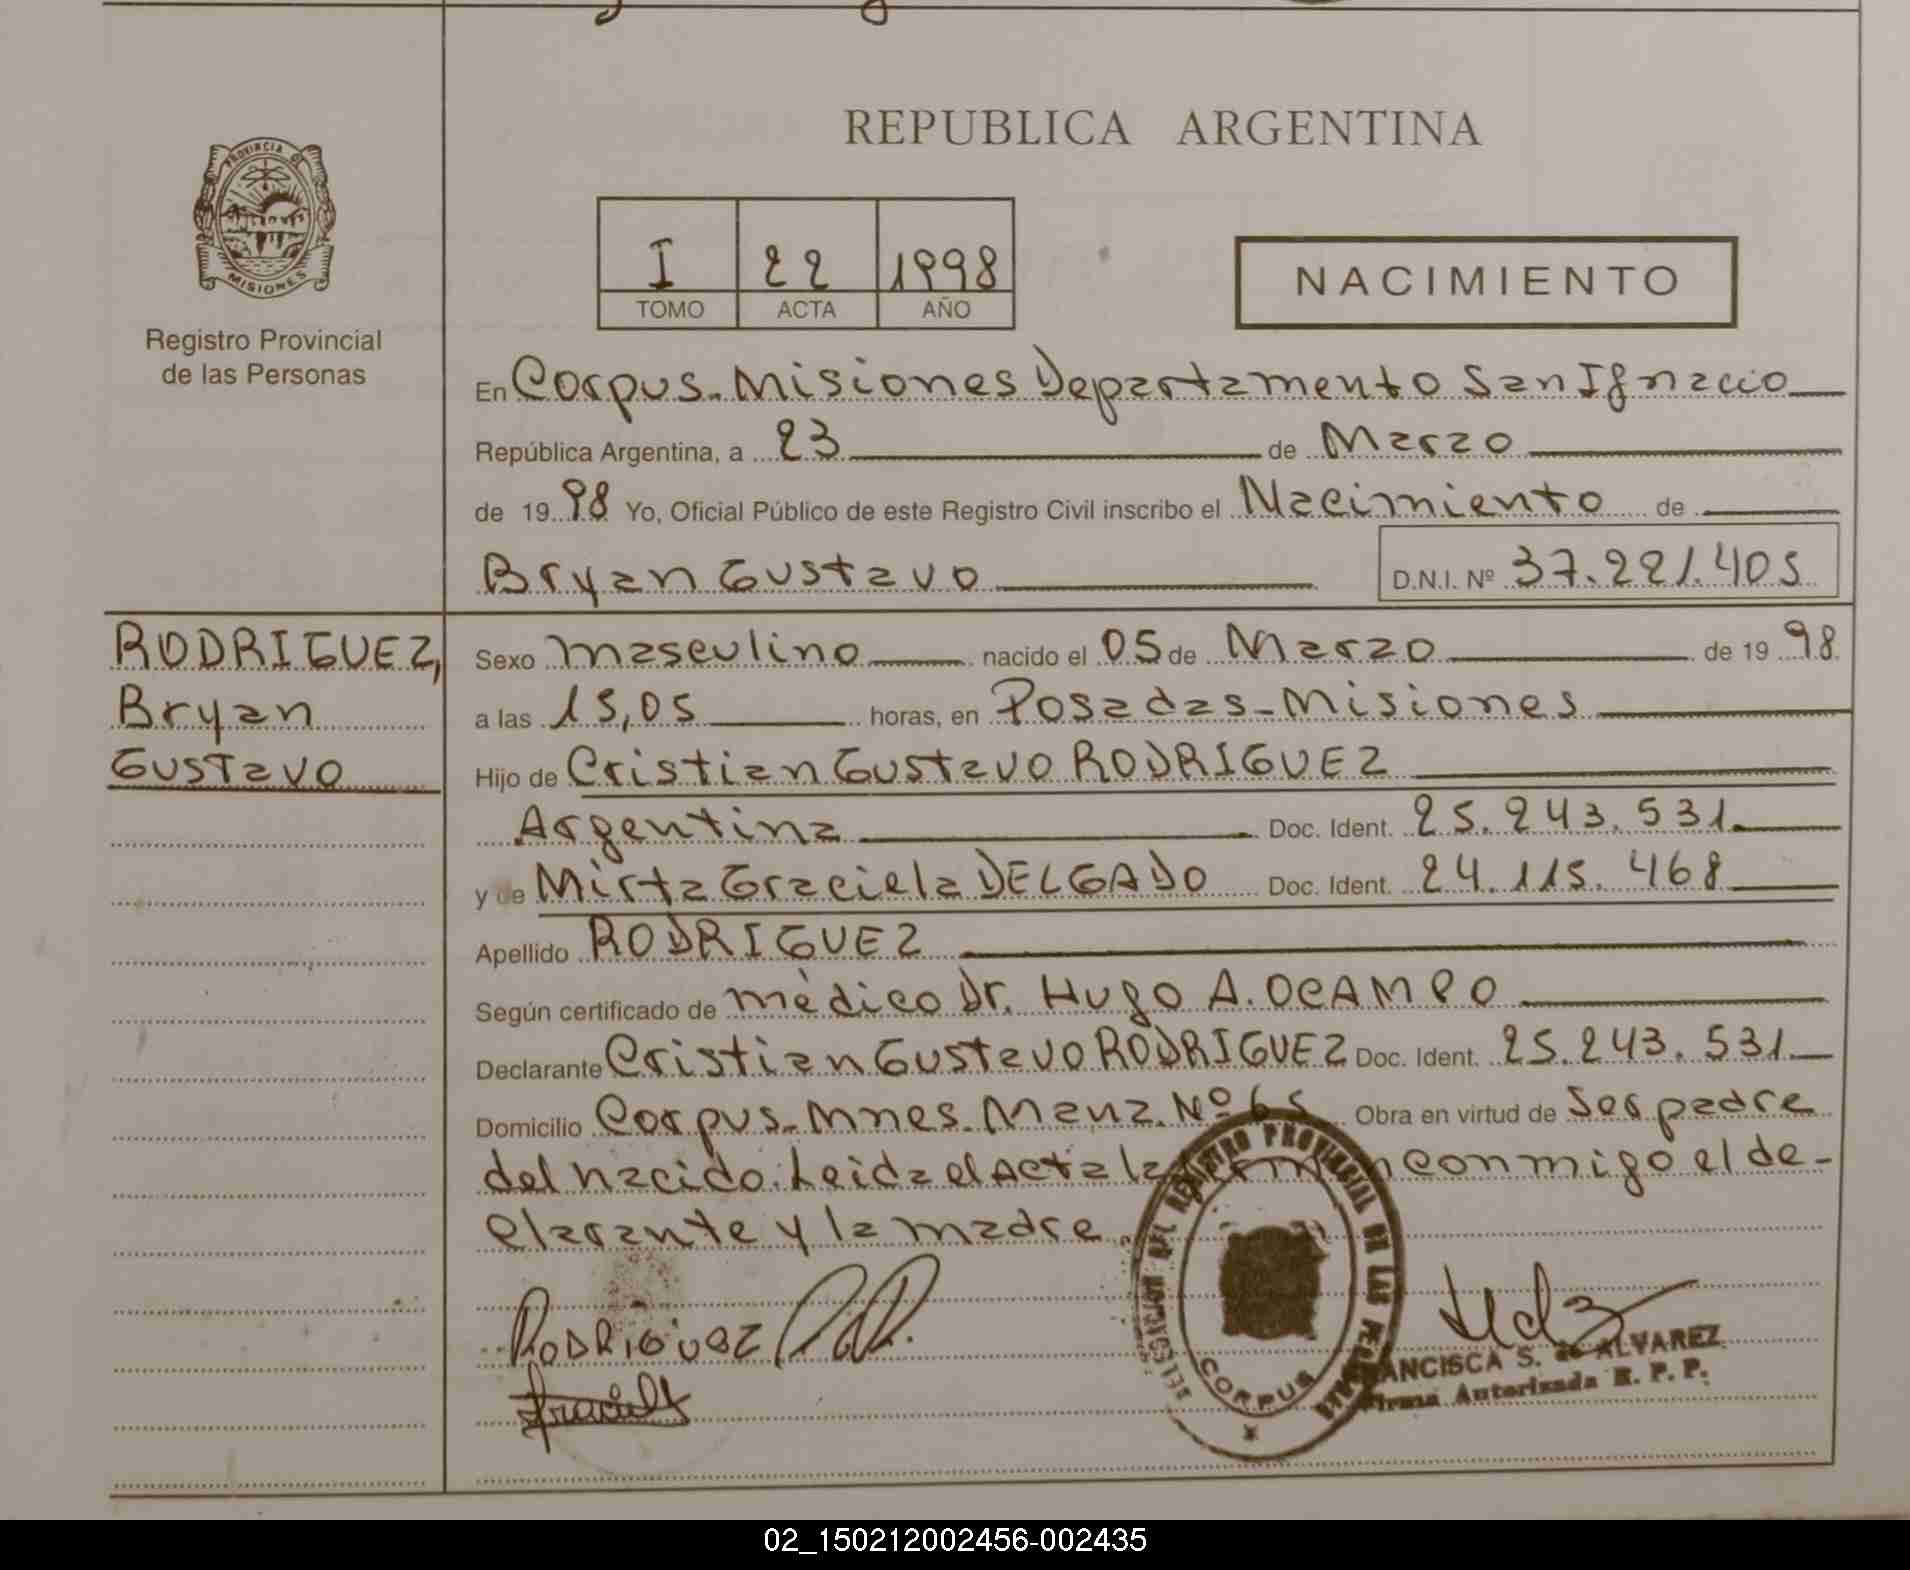 REPUBLICA ARGENTINA
PROVINCIA DE
MISIONES
Registro Provincial
de las Personas
I 22 1998
TOMO ACTA AÑO
NACIMIENTO
En Corpus-Misiones Departamento San Ignacio
República Argentina, a 23 de Marzo
de 1998 Yo, Oficial Público de este Registro Civil inscribo el Nacimiento de
Bryan Gustavo D.N.I. Nº 37.221.405
RODRIGUEZ,
Bryan
Gustavo
Sexo masculino nacido el 05 de Marzo de 1998
a las 15,05 horas, en Posadas-Misiones
Hijo de Cristian Gustavo RODRIGUEZ
Argentina Doc. Ident. 25.243.531.
y de Mirta Graciela DELGADO Doc. Ident. 24.115.468
Apellido RODRIGUEZ
Según certificado de médico Dr. Hugo A. OCAMPO
Declarante Cristian Gustavo RODRIGUEZ Doc. Ident. 25.243.531.
Domicilio Corpus-Mnes. Manz. Nº 65 Obra en virtud de Ser padre
del nacido. Leida el Acta la firman conmigo el de-
clarante y la madre.
RODRIGUEZ
DELEGACION DEL REGISTRO PROVINCIAL DE LAS PERSONAS
CORPUS
FRANCISCA S. de ALVAREZ
Firma Autorizada R. P. P.
02_150212002456-002435